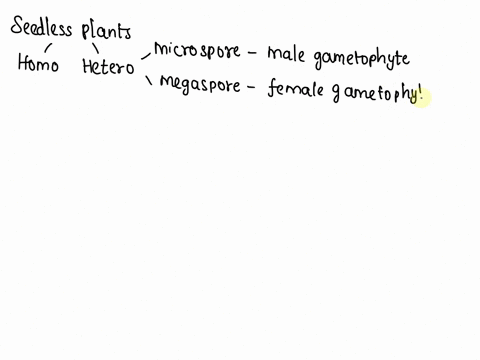 Seedless plants
Homo Hetero microspore - male gametophyte
megaspore - female gametophy